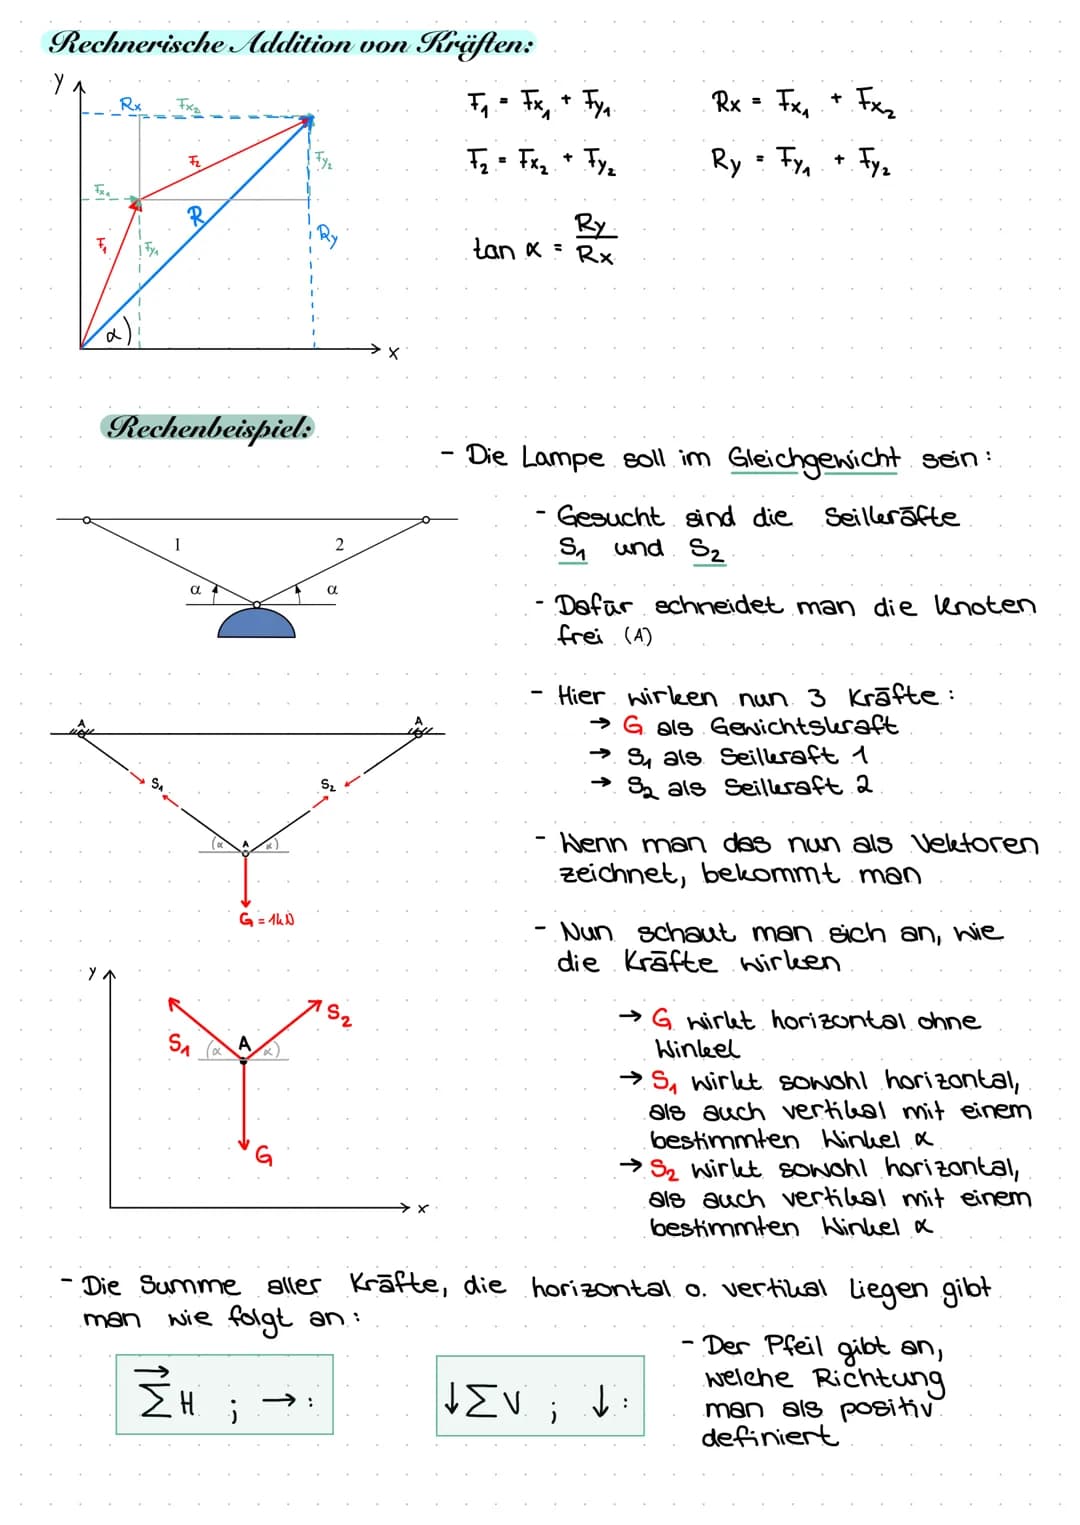 Rechnerische Addition von Kräften:
y
Rx Fx₂
F₁ = Fx₁ + Fy₁
Rx = Fx₁ + Fx₂
F₂
Fy₂
F₂ = Fx₂ + Fy₂
Ry = Fy₁ + Fy₂
Fx₁
R
F₁
Fy₁
Ry
tan α = Ry / Rx
α)
x
Rechenbeispiel:
- Die Lampe soll im Gleichgewicht sein:
- Gesucht sind die Seilkräfte
S₁ und S₂
1 2
α α
- Dafür schneidet man die Knoten
frei (A)
- Hier wirken nun 3 Kräfte:
→ G als Gewichtskraft
→ S₁ als Seilkraft 1
→ S₂ als Seilkraft 2
A A
S₁ S₂
(α A α)
G = 1kN
- Wenn man das nun als Vektoren
zeichnet, bekommt man
- Nun schaut man sich an, wie
die Kräfte wirken
y
S₂
S₁ (α A α)
G
x
→ G wirkt horizontal ohne
Winkel
→ S₁ wirkt sowohl horizontal,
als auch vertikal mit einem
bestimmten Winkel α
→ S₂ wirkt sowohl horizontal,
als auch vertikal mit einem
bestimmten Winkel α
- Die Summe aller Kräfte, die horizontal o. vertikal liegen gibt
man wie folgt an:
→ ∑H ; → :
↓∑V ; ↓ :
- Der Pfeil gibt an,
welche Richtung
man als positiv
definiert